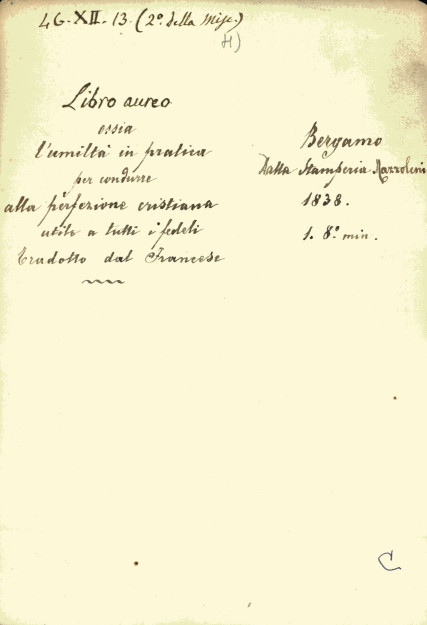 46.XII.13. (2º. della Misc.)
H)
Libro aureo
ossia
l'umiltà in pratica
per condurre
alla perfezione cristiana
utile a tutti i fedeli
Tradotto dal Francese
Bergamo
Dalla Stamperia Mazzoleni
1838.
1. 8.º min.
C